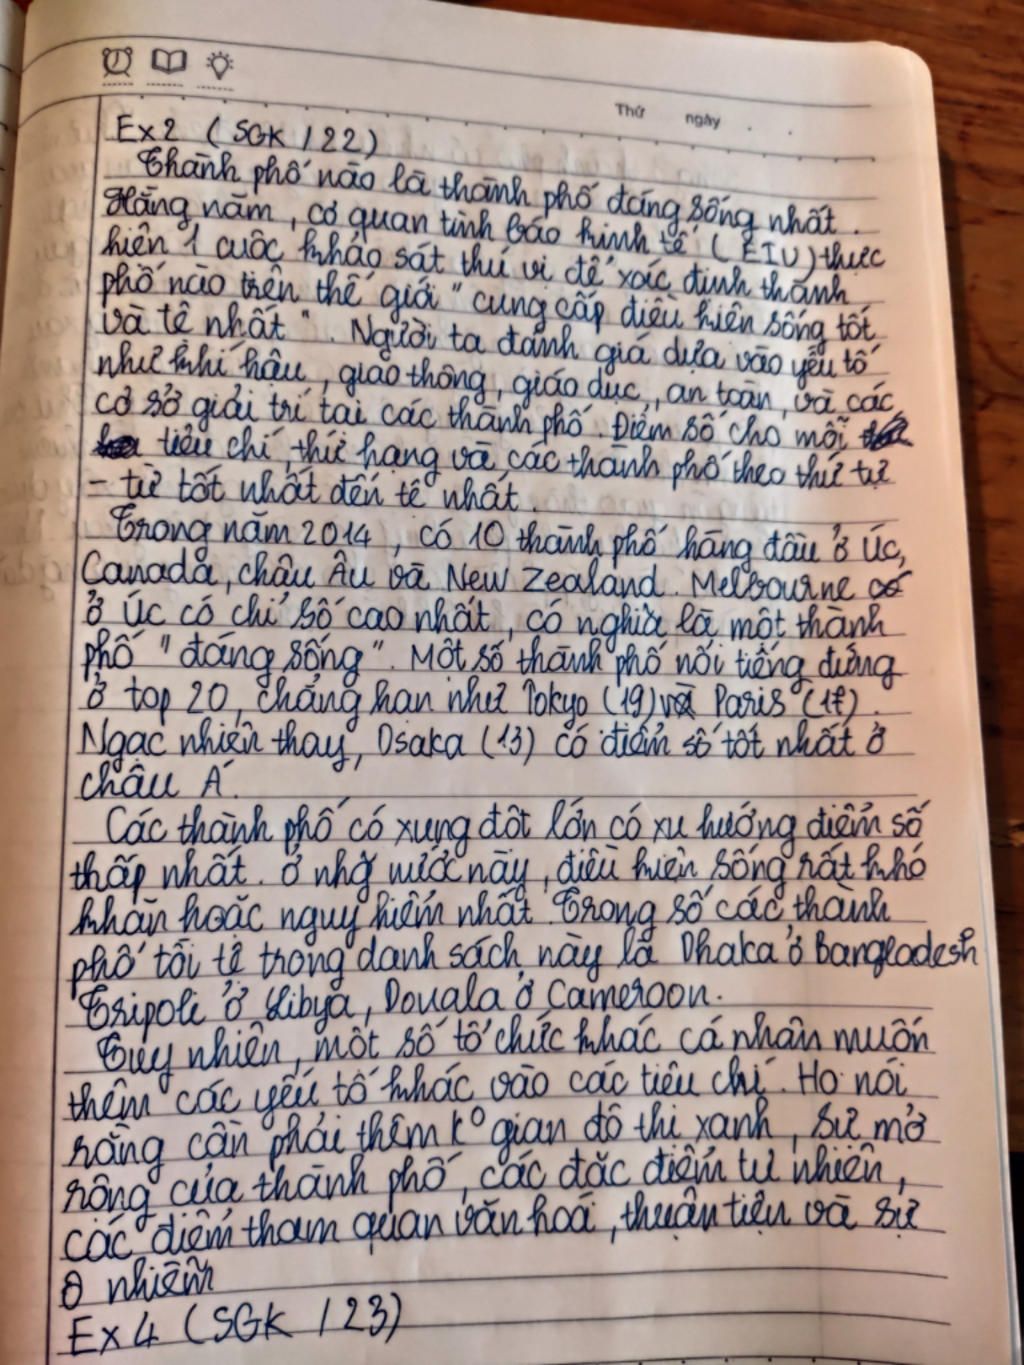 Thứ ngày
Ex2 (SGK / 22)
Thành phố nào là thành phố đáng sống nhất.
Hằng năm, cơ quan tình báo kinh tế (EIU) thực
hiện 1 cuộc khảo sát thú vị để xác định thành
phố nào trên thế giới "cung cấp điều kiện sống tốt
và tệ nhất". Người ta đánh giá dựa vào yếu tố
như khí hậu, giao thông, giáo dục, an toàn, và các
cơ sở giải trí tại các thành phố. Điểm số cho mỗi
tiêu chí, thứ hạng và các thành phố theo thứ tự
- từ tốt nhất đến tệ nhất.
Trong năm 2014, có 10 thành phố hàng đầu ở Úc,
Canada, châu Âu và New Zealand. Melbourne
ở Úc có chỉ số cao nhất, có nghĩa là một thành
phố "đáng sống". Một số thành phố nổi tiếng đứng
ở top 20, chẳng hạn như Tokyo (19) và Paris (17).
Ngạc nhiên thay, Osaka (13) có điểm số tốt nhất ở
châu Á.
Các thành phố có xung đột lớn có xu hướng điểm số
thấp nhất. Ở nhg nước này, điều kiện sống rất khó
khăn hoặc nguy hiểm nhất. Trong số các thành
phố tồi tệ trong danh sách này là Dhaka ở Bangladesh
Tripoli ở Libya, Douala ở Cameroon.
Tuy nhiên, một số tổ chức khác cá nhân muốn
thêm các yếu tố khác vào các tiêu chí. Họ nói
rằng cần phải thêm k° gian đô thị xanh, sự mở
rộng của thành phố, các đặc điểm tự nhiên,
các điểm tham quan văn hoá, thuận tiện và sự
ô nhiễm
Ex4 (SGK / 23)